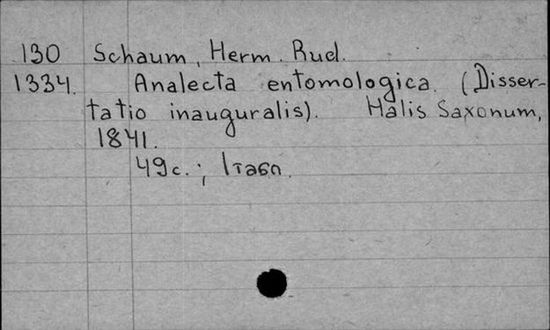 130 Schaum, Herm. Rud.
1334. Analecta entomologica. (Disser-
tatio inauguralis). Halis Saxonum,
1841.
49с.; 1 табл.